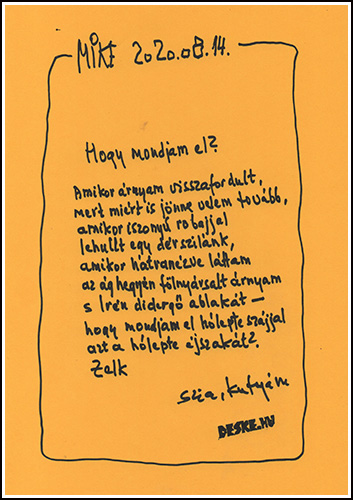 MIKI 2020.08.14.
Hogy mondjam el?
Amikor árnyam visszafordult,
mert miért is jönne velem tovább,
amikor iszonyú robajjal
lehullt egy dérszilánk,
amikor hátranézve láttam
az ág hegyén fölnyársalt árnyam
s Irén didergő ablakát —
hogy mondjam el hólepte szájjal
azt a hólepte éjszakát?
Zelk
Szia, kutyám
DESKE.HU